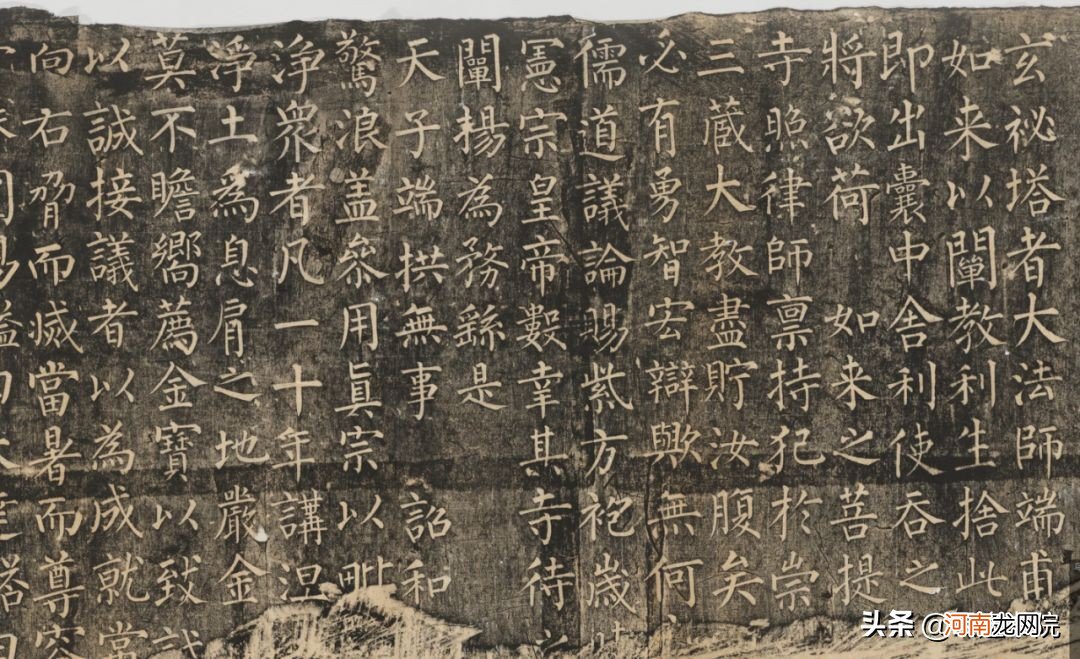 玄祕塔者大法師端甫
如来以闡教利生捨此
即出囊中舍利使吞之
將欲荷 如来之菩提
寺照律師禀持犯於崇
三蔵大教盡貯汝腹矣
必有勇智宏辯歟無何
儒道議論賜紫方袍歲時
憲宗皇帝數幸其寺待之
闡揚為務繇是
天子端拱無事 詔和
驚浪蓋叅用眞宗以毗
浄衆者凡一十年講涅
浄土為息肩之地嚴金
莫不瞻嚮薦金寶以致誠
以誠接議者以為成就常
向右脅而滅當暑而尊容
头条 @河南龙网